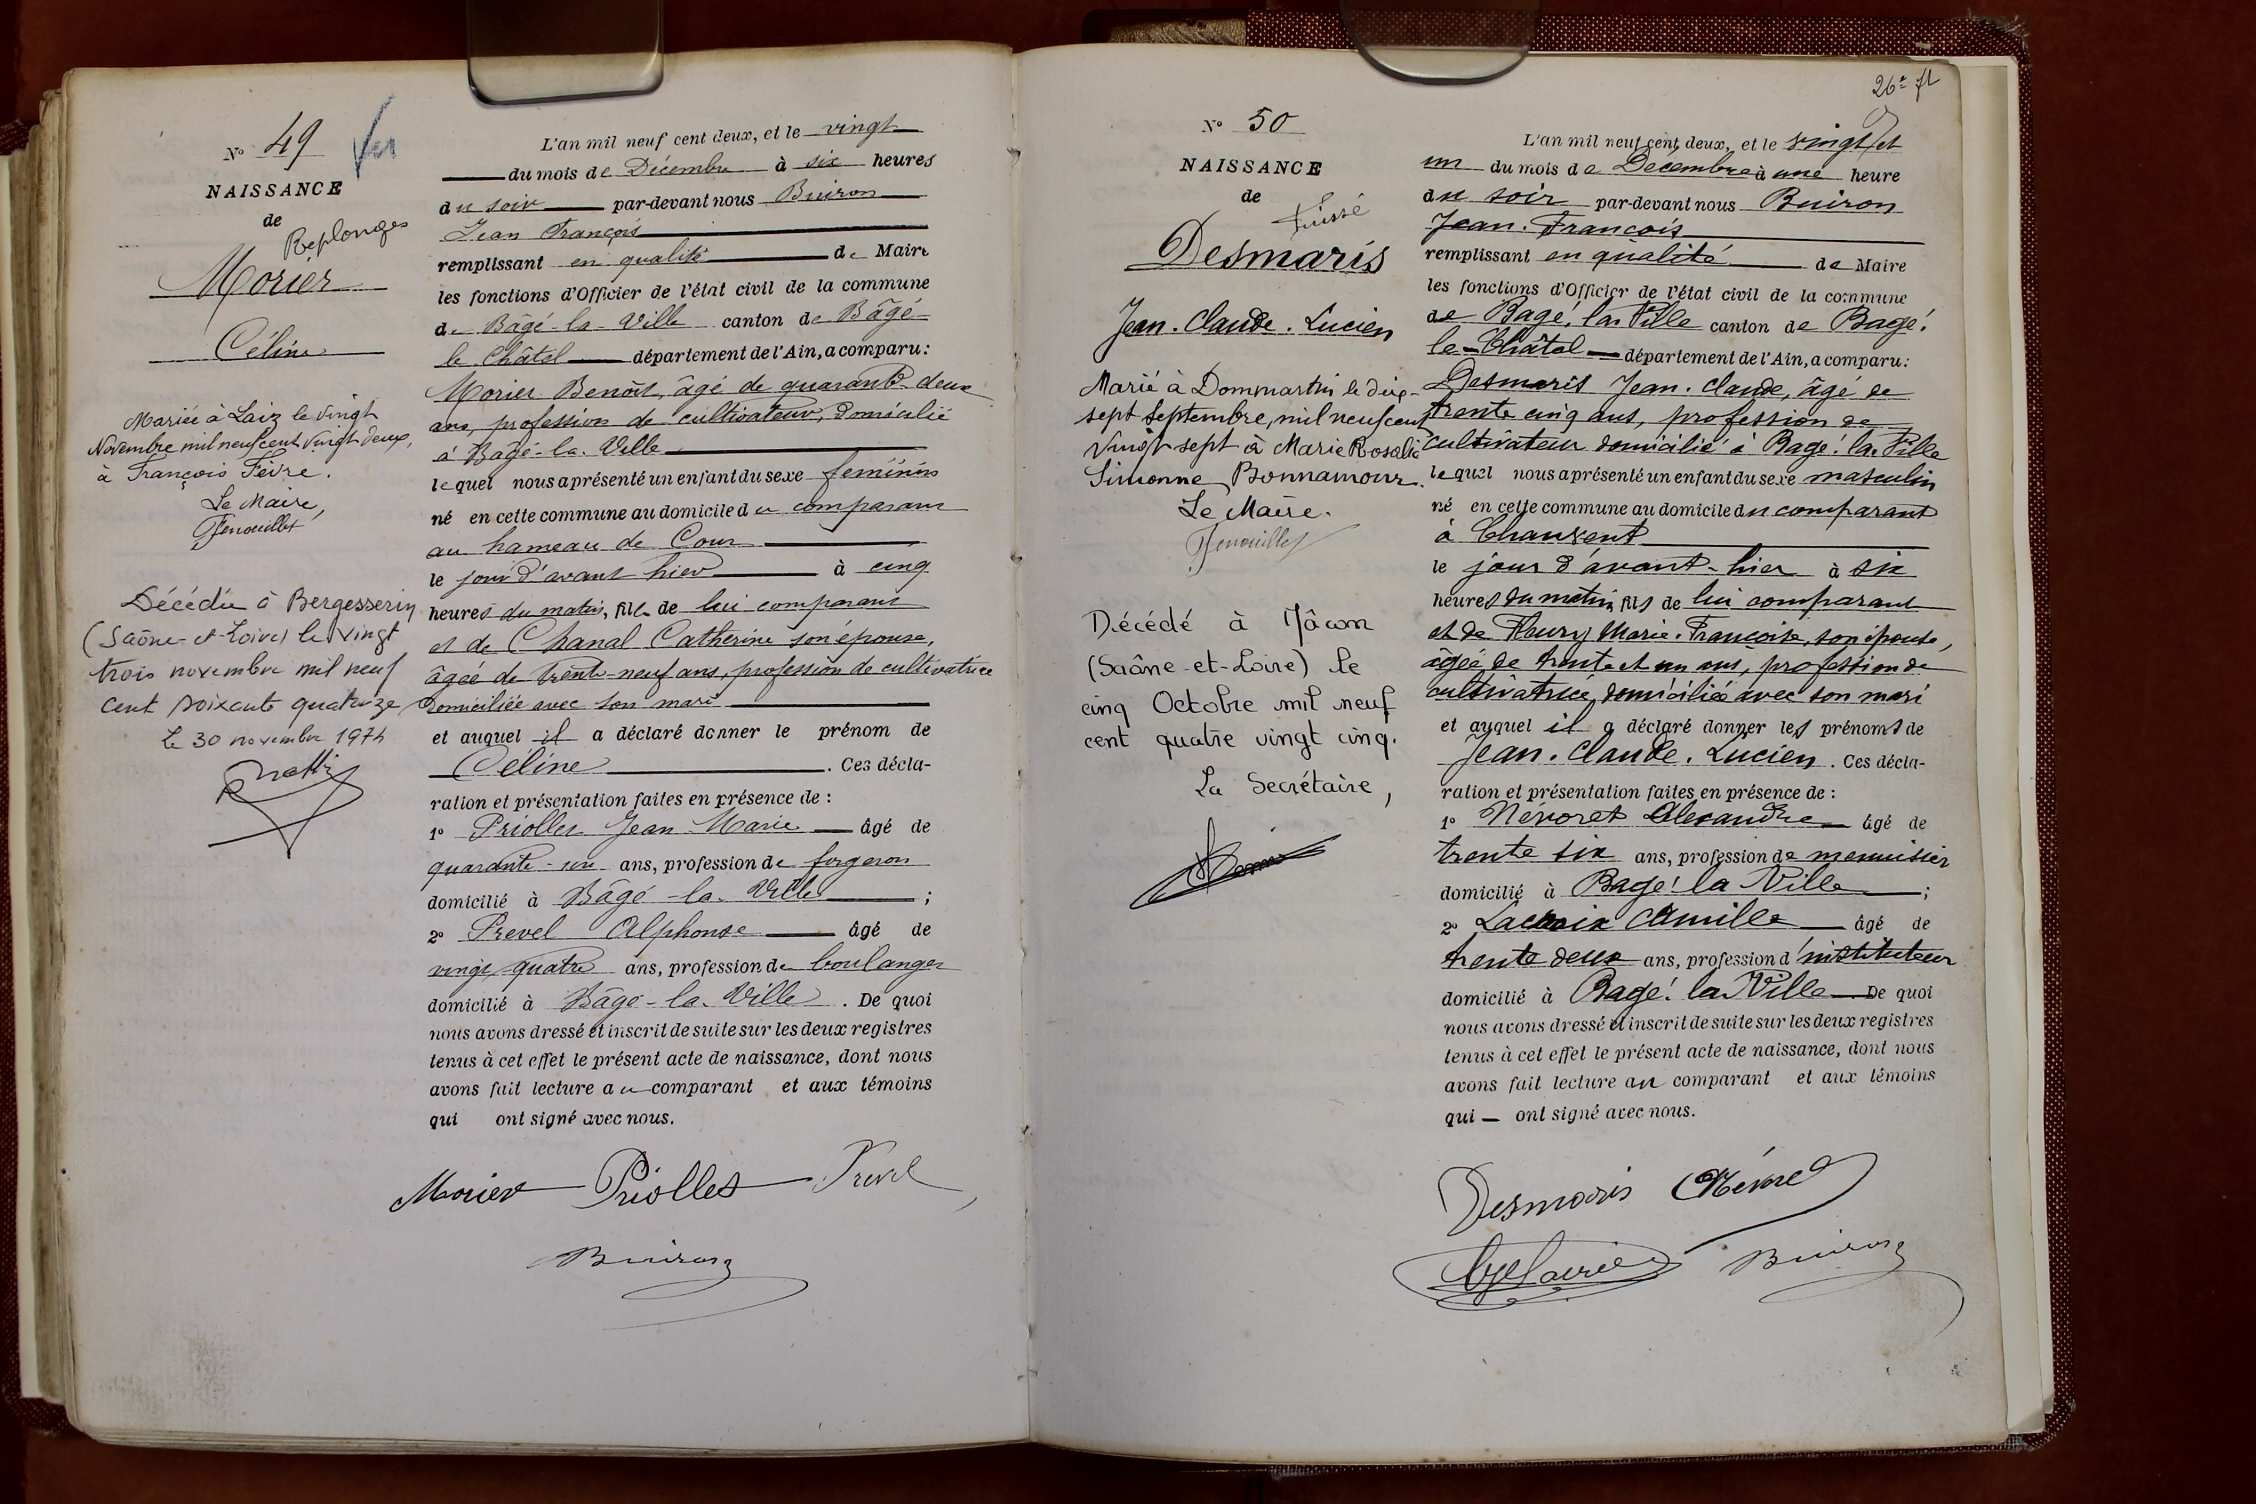 Nº 49
Vu
NAISSANCE
de
Replonges
Morier
Céline
Mariée à Laiz le vingt
Novembre mil neuf cent vingt deux,
à François Fèvre.
Le Maire,
Décédée à Bergesserin
(Saône-et-Loire) le vingt
trois novembre mil neuf
cent soixante quatorze
Le 30 novembre 1974
L'an mil neuf cent deux, et le vingt
du mois de Décembre à six heures
du soir par-devant nous Buiron
Jean François
remplissant en qualité de Maire
les fonctions d'Officier de l'état civil de la commune
de Bâgé-la-Ville canton de Bâgé-
le Châtel département de l'Ain, a comparu:
Morier Benoît, âgé de quarante-deux
ans, profession de cultivateur, domicilié
à Bâgé-la-Ville
lequel nous a présenté un enfant du sexe féminin
né en cette commune au domicile du comparant
au hameau de Cour
le jour d'avant hier à cinq
heures du matin, fille de lui comparant
et de Chanal Catherine son épouse,
âgée de trente-neuf ans, profession de cultivatrice
domiciliée avec son mari
et auquel il a déclaré donner le prénom de
Céline. Ces décla-
ration et présentation faites en présence de:
1º Priolles Jean Marie âgé de
quarante-un ans, profession de forgeron
domicilié à Bâgé-la-Ville;
2º Prevel Alphonse âgé de
vingt-quatre ans, profession de boulanger
domicilié à Bâgé-la-Ville. De quoi
nous avons dressé et inscrit de suite sur les deux registres
tenus à cet effet le présent acte de naissance, dont nous
avons fait lecture au comparant et aux témoins
qui ont signé avec nous.
Morier Priolles Prevel
Buiron
26e ft
Nº 50
NAISSANCE
de
Fuissé
Desmaris
Jean. Claude. Lucien
Marié à Dommartin le dix-
sept Septembre, mil neuf cent
vingt sept à Marie Rosalie
Simonne Bonnamour.
Le Maire.
Décédé à Mâcon
(Saône-et-Loire) le
cinq Octobre mil neuf
cent quatre vingt cinq.
La Secrétaire,
L'an mil neuf cent deux, et le vingt et
un du mois de Décembre à une heure
du soir par-devant nous Buiron
Jean. François
remplissant en qualité de Maire
les fonctions d'Officier de l'état civil de la commune
de Bagé. la Ville canton de Bagé.
le Châtel département de l'Ain, a comparu:
Desmaris Jean. Claude, âgé de
trente cinq ans, profession de
cultivateur domicilié à Bagé. la Ville
lequel nous a présenté un enfant du sexe masculin
né en cette commune au domicile du comparant
à Chanvent
le jour d'avant-hier à six
heures du matin, fils de lui comparant
et de Fleury Marie. Françoise, son épouse,
âgée de trente et un ans, profession de
cultivatrice, domiciliée avec son mari
et auquel il a déclaré donner les prénoms de
Jean. Claude. Lucien. Ces décla-
ration et présentation faites en présence de:
1º Névoret Alexandre âgé de
trente six ans, profession de menuisier
domicilié à Bagé. la Ville;
2º Lacroix Camille âgé de
trente deux ans, profession d'instituteur
domicilié à Bagé. la Ville De quoi
nous avons dressé et inscrit de suite sur les deux registres
tenus à cet effet le présent acte de naissance, dont nous
avons fait lecture au comparant et aux témoins
qui ont signé avec nous.
Desmaris
Buiron